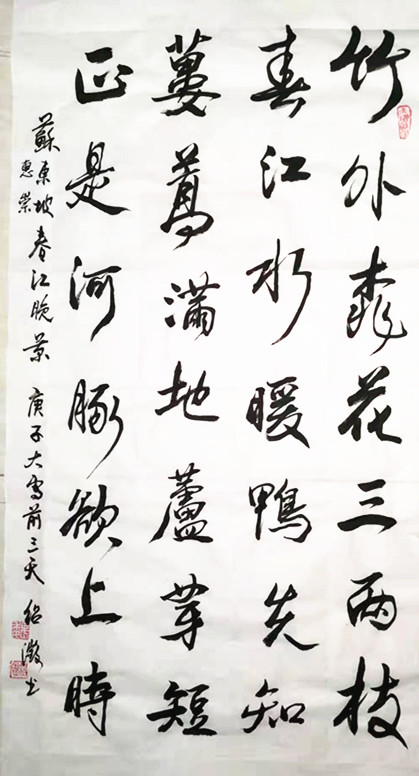 竹外桃花三两枝
春江水暖鴨先知
蔞蒿滿地蘆芽短
正是河豚欲上時
蘇東坡惠崇春江晚景 庚子大雪前三天 紹澂书